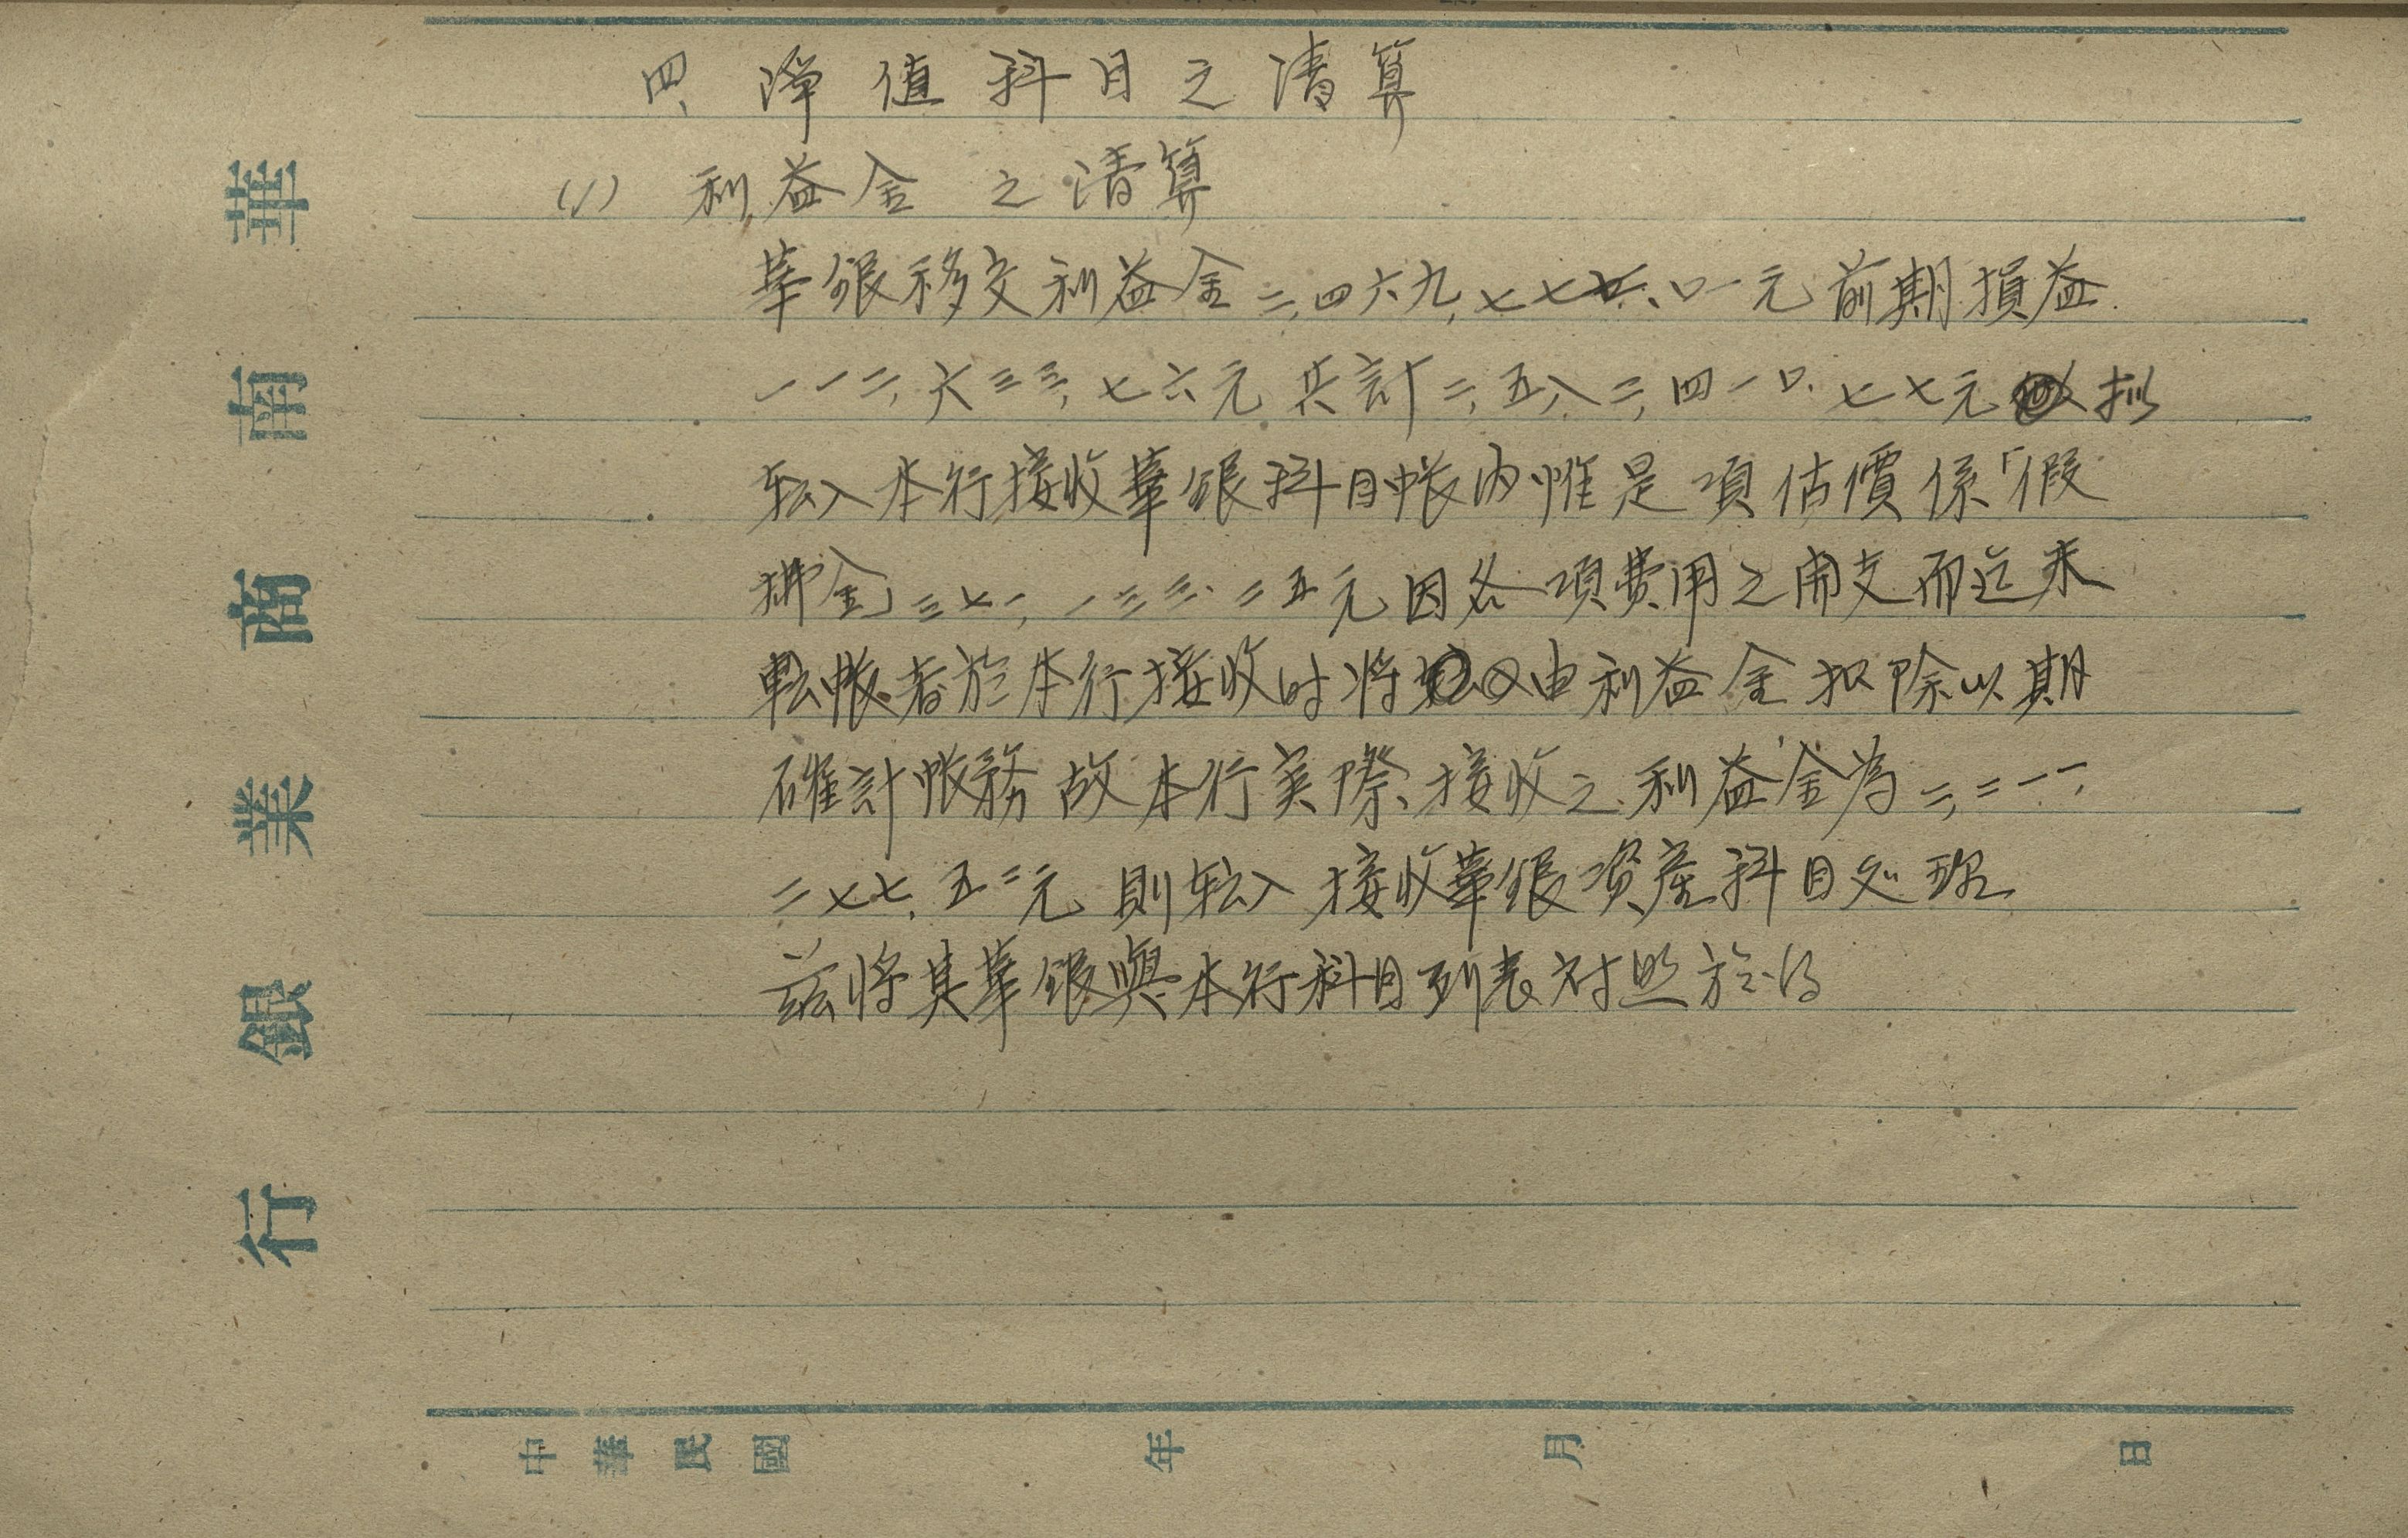 四、降值科目之清算
(1) 利益金之清算
華銀移交利益金二,四六九,七七七.〇一元前期損益
一一二,六三三,七六元共計二,五八二,四一〇.七七元 拟
転入本行接收華銀科目帳內惟是項估價係「假
拂金」三七一,一三三.二五元因各項費用之開支而迄未
転帳者於本行接收时將 由利益金扣除以期
確計帳務故本行实際接收之利益金為二,二一一,
二七七.五二元則転入接收華銀資産科目処理
茲將其華銀與本行科目列表对照於后
華南商業銀行
中華民國 年 月 日